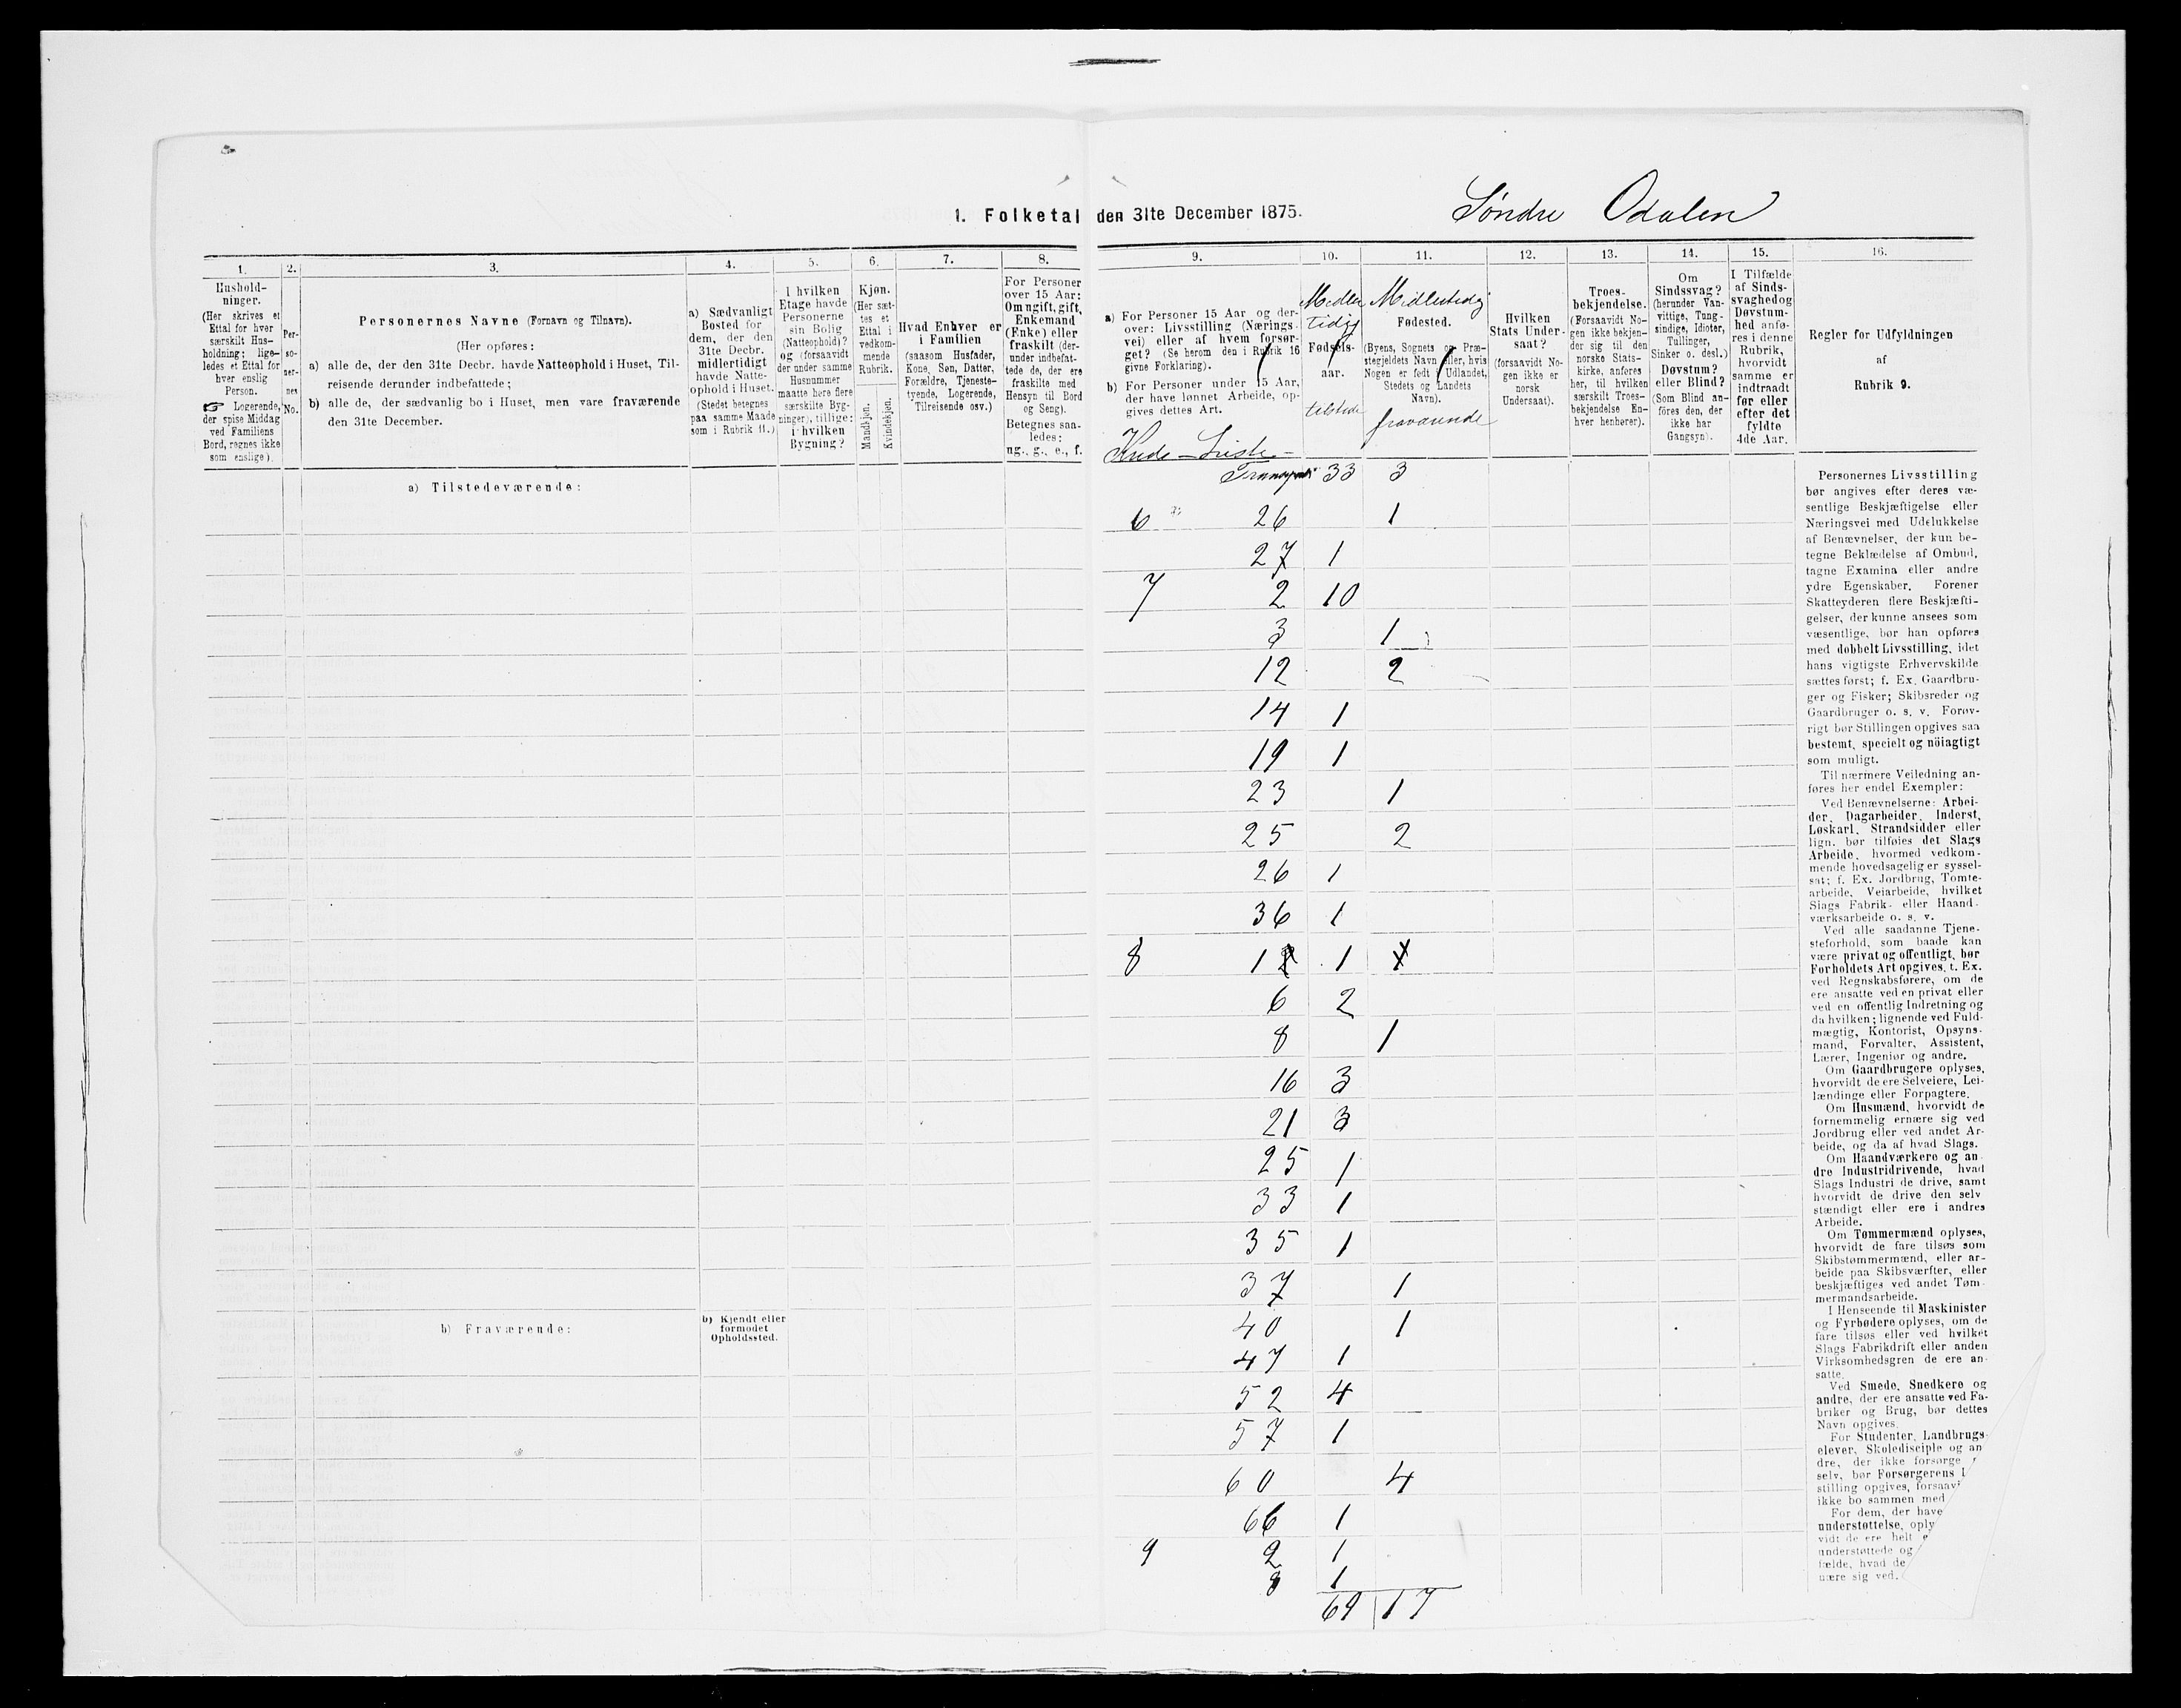 1. Folketal den 31te December 1875. Søndre Odalen
1.
Hushold-
ninger.
(Her skrives et
Ettal for hver
særskilt Hus-
holdning; lige-
ledes et Ettal for
hver enslig
Person.
☞ Logerende,
der spise Middag
ved Familiens
Bord, regnes ikke
som enslige).
2.
Per-
so-
ner-
nes
No.
3.
Personernes Navne (Fornavn og Tilnavn).
(Her opføres:
a) alle de, der den 31te Decbr. havde Natteophold i Huset, Til-
reisende derunder indbefattede;
b) alle de, der sædvanlig bo i Huset, men vare fraværende
den 31te December.
4.
a) Sædvanligt
Bosted for
dem, der den
31te Decbr.
midlertidigt
havde Natte-
ophold i Huset.
(Stedet betegnes
paa samme Maade
som i Rubrik 11.)
5.
I hvilken
Etage havde
Personerne
sin Bolig
(Natteophold)?
og (forsaavidt
der under samme
Husnummer
maatte høre flere
særskilte Byg-
ninger), tillige:
i hvilken
Bygning?
6.
Kjøn.
(Her sæt-
tes et
Ettal i
vedkom-
mende
Rubrik.
Mandkjøn.
Kvindekjøn.
7.
Hvad Enhver er
i Familien
(saasom Husfader,
Kone, Søn, Datter,
Forældre, Tjeneste-
tyende, Logerende,
Tilreisende osv.)
8.
For Personer
over 15 Aar:
Om ugift, gift,
Enkemand
(Enke) eller
fraskilt (der-
under indbefat-
tede de, der ere
fraskilte med
Hensyn til Bord
og Seng).
Betegnes saa-
ledes:
ug., g., e., f.
9.
a) For Personer 15 Aar og der-
over: Livsstilling (Nærings-
vei) eller af hvem forsør-
get? (Se herom den i Rubrik 16
givne Forklaring).
b) For Personer under 15 Aar,
der have lønnet Arbeide, op-
gives dettes Art.
10.
Midler
tidig
Fødsels-
aar.
tilstede
11.
Midlertidig
Fødested.
(Byens, Sognets og Præ-
stegjeldets Navn eller, hvis
Nogen er født i Udlandet,
Stedets og Landets
Navn).
fraværende
12.
Hvilken
Stats Under-
saat?
(forsaavidt No-
gen ikke er
norsk
Undersaat).
13.
Troes-
bekjendelse.
(Forsaavidt No-
gen ikke bekjen-
der sig til den
norske Stats-
kirke, anføres
her, til hvilken
særskilt Troes-
bekjendelse En-
hver henhører).
14.
Om
Sindssvag?
(herunder Van-
vittige, Tung-
sindige, Idioter,
Tullinger,
Sinker o. desl.)
Døvstum?
eller Blind?
(Som Blind an-
føres den, der
ikke har
Gangsyn).
15.
I Tilfælde
af Sinds-
svaghed og
Døvstum-
hed anfø-
res i denne
Rubrik,
hvorvidt
samme er
indtraadt
før eller
efter det
fyldte
4de Aar.
16.
Regler for Udfyldningen
af
Rubrik 9.
a) Tilstedeværende:
b) Fraværende:
b) Kjendt eller
formodet
Opholdssted.
Liste
33 3
6 26 1
27 1
7 2 10
3 1
12 2
14 1
19 1
23 1
25 2
26 1
36 1
8 1 1
6 2
8 1
16 3
21 3
25 1
33 1
35 1
37 1
40 1
47 1
52 4
57 1
60 4
66 1
9 2 1
8 1
69 17
Personernes Livsstilling
bør angives efter deres væ-
sentlige Beskjæftigelse eller
Næringsvei med Udelukkelse
af Benævnelser, der kun be-
tegne Beklædelse af Ombud,
tagne Examina eller andre
ydre Egenskaber. Forener
Skatteyderen flere Beskjæfti-
gelser, der kunne ansees som
væsentlige, bør han opføres
med dobbelt Livsstilling, idet
hans vigtigste Erhvervskilde
sættes først; f. Ex. Gaardbru-
ger og Fisker; Skibsreder og
Gaardbruger o. s. v. Forøv-
rigt bør Stillingen opgives saa
bestemt, specielt og nöiagtigt
som muligt.
Til nærmere Veiledning an-
føres her endel Exempler:
Ved Benævnelserne: Arbei-
der, Dagarbeider, Inderst,
Løskarl, Strandsidder eller
lign. bør tilføies det Slags
Arbeide, hvormed vedkom-
mende hovedsagelig er syssel-
sat; f. Ex. Jordbrug, Tomte-
arbeide, Veiarbeide, hvilket
Slags Fabrik- eller Haand-
værksarbeide o. s. v.
Ved alle saadanne Tjene-
steforhold, som baade kan
være privat og offentligt, bør
Forholdets Art opgives, t. Ex.
ved Regnskabsførere, om de
ere ansatte ved en privat eller
ved en offentlig Indretning og
da hvilken; lignende ved Fuld-
mægtig, Kontorist, Opsyns-
mand, Forvalter, Assistent,
Lærer, Ingeniør og andre.
Om Gaardbrugere oplyses,
hvorvidt de ere Selveiere, Lei-
lændinge eller Forpagtere.
Om Husmænd, hvorvidt de
fornemmelig ernære sig ved
Jordbrug eller ved andet Ar-
beide, og da af hvad Slags.
Om Haandværkere og an-
dre Industridrivende, hvad
Slags Industri de drive, samt
hvorvidt de drive den selv
stændigt eller ere i andres
Arbeide.
Om Tømmermænd oplyses,
hvorvidt de fare tilsøs som
Skibstømmermænd, eller ar-
beide paa Skibsværfter, eller
beskjæftiges ved andet Tøm-
mermandsarbeide.
I Henseende til Maskinister
og Fyrbødere oplyses, om de
fare tilsøs eller ved hvilket
Slags Fabrikdrift eller anden
Virksomhedsgren de ere an-
satte.
Ved Smede, Snedkere og
andre, der ere ansatte ved Fa-
briker og Brug, bør dettes
Navn opgives.
For Studenter, Landbrugs-
elever, Skoledisciple og an
dre, der ikke forsørge
selv, bør Forsørgerens
stilling opgives, forsaavi
ikke bo sammen med
For dem, der have
understøttelse, oply
vidt de ere helt
understøttede og
fælde, hvad de
nære sig ved.